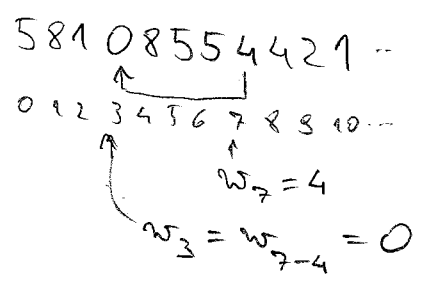 58108554421 ..
0 1 2 3 4 5 6 7 8 9 10 ...
w₇ = 4
w₃ = w₇₋₄ = 0